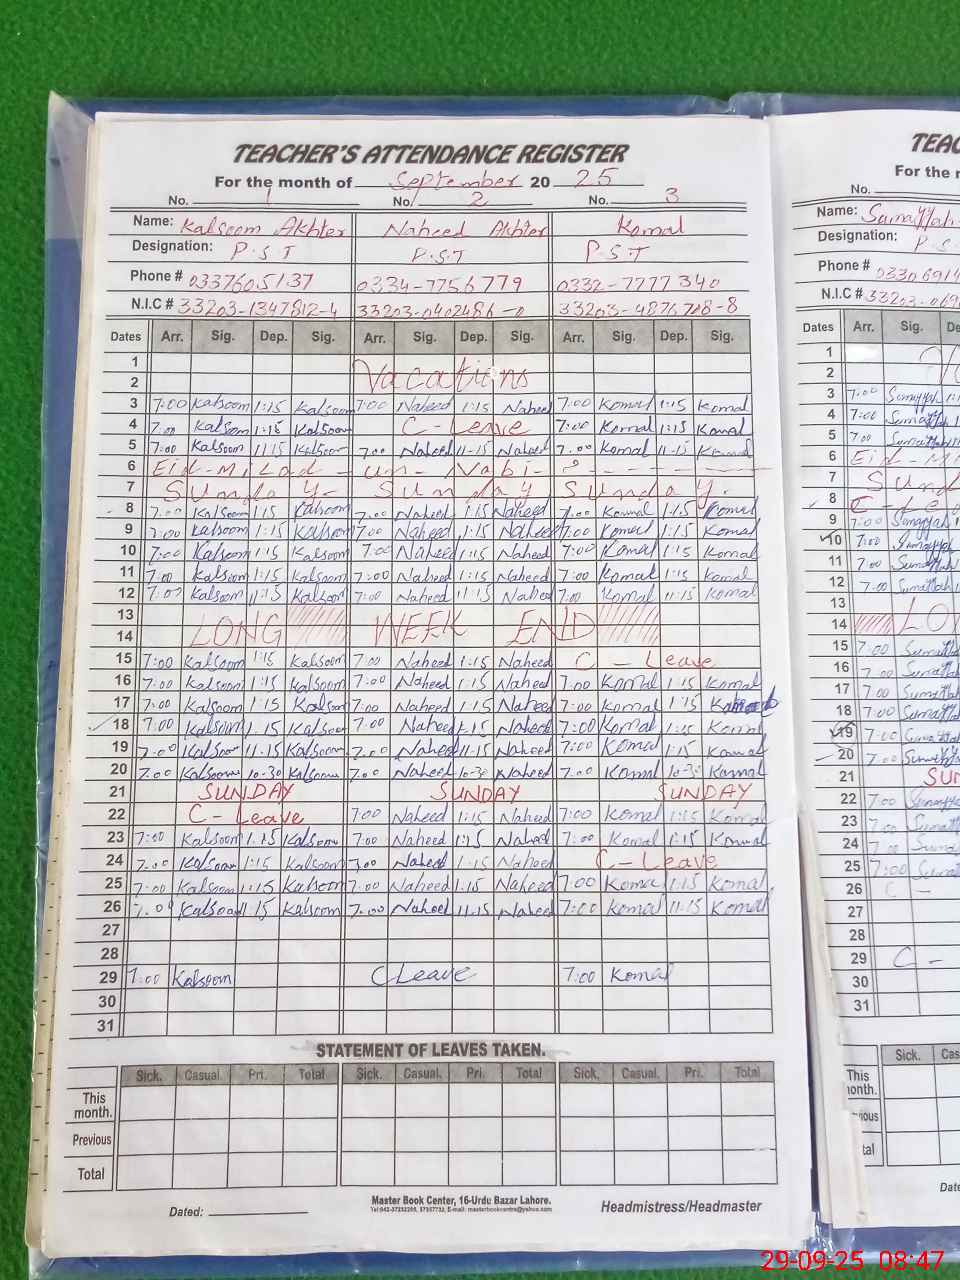 TEACHER'S ATTENDANCE REGISTER
For the month of September 20 25
No. 1 No. 2 No. 3
Name: Kalsoom Akhter Naheed Akhter Komal
Designation: P.S.T P.S.T P.S.T
Phone # 0337605137 0334-7756779 0332-7777340
N.I.C # 33203-1347812-4 33203-0402486-0 33203-4876708-8
Dates Arr. Sig. Dep. Sig. Arr. Sig. Dep. Sig. Arr. Sig. Dep. Sig.
1
2 Vacations
3 7:00 Kalsoom 1:15 Kalsoom 7:00 Naheed 1:15 Naheed 7:00 Komal 1:15 Komal
4 7:00 Kalsoom 1:15 Kalsoom C-Leave 7:00 Komal 1:15 Komal
5 7:00 Kalsoom 11:15 Kalsoom 7:00 Naheed 11-15 Naheed 7:00 Komal 11-15 Komal
6 Eid-Milad-un-Nabi-
7 Sunday- Sunday Sunday.
8 7:00 Kalsoom 1:15 Kalsoom 7:00 Naheed 1:15 Naheed 7:00 Komal 1:15 Komal
9 7:00 Kalsoom 1:15 Kalsoom 7:00 Naheed 1:15 Naheed 7:00 Komal 1:15 Komal
10 7:00 Kalsoom 1:15 Kalsoom 7:00 Naheed 1:15 Naheed 7:00 Komal 1:15 Komal
11 7:00 Kalsoom 1:15 Kalsoom 7:00 Naheed 1:15 Naheed 7:00 Komal 1:15 Komal
12 7:00 Kalsoom 11:15 Kalsoom 7:00 Naheed 11:15 Naheed 7:00 Komal 11:15 Komal
13
14 LONG WEEK END
15 7:00 Kalsoom 1:15 Kalsoom 7:00 Naheed 1:15 Naheed C - Leave
16 7:00 Kalsoom 1:15 Kalsoom 7:00 Naheed 1:15 Naheed 7:00 Komal 1:15 Komal
17 7:00 Kalsoom 1:15 Kalsoom 7:00 Naheed 1:15 Naheed 7:00 Komal 1:15
18 7:00 Kalsoom 1:15 Kalsoom 7:00 Naheed 1:15 Naheed 7:00 Komal 1:15 Komal
19 7:00 Kalsoom 11.15 Kalsoom 7:00 Naheed 11-15 Naheed 7:00 Komal 1:15 Komal
20 7:00 Kalsoom 10-30 Kalsoom 7:00 Naheed 10-30 Naheed 7:00 Komal 10-30 Komal
21 SUNDAY SUNDAY SUNDAY
22 C-Leave 7:00 Naheed 1:15 Naheed 7:00 Komal 1:15 Komal
23 7:00 Kalsoom 1:15 Kalsoom 7:00 Naheed 1:15 Naheed 7:00 Komal 1:15 Komal
24 7:00 Kalsoom 1:15 Kalsoom 7:00 Naheed 1:15 Naheed C-Leave
25 7:00 Kalsoom 1:15 Kalsoom 7:00 Naheed 1:15 Naheed 7:00 Komal 1:15 Komal
26 7:00 Kalsoom 11:15 Kalsoom 7:00 Naheed 11:15 Naheed 7:00 Komal 11:15 Komal
27
28
29 7:00 Kalsoom C Leave 7:00 Komal
30
31
STATEMENT OF LEAVES TAKEN.
Sick. Casual. Pri. Total Sick. Casual. Pri. Total Sick. Casual. Pri. Total
This month.
Previous
Total
Dated:
Master Book Center, 16-Urdu Bazar Lahore.
Headmistress/Headmaster
For the
No.
Name:
Designation: P.S
Phone #
N.I.C # 33203-
Dates Arr. Sig.
1
2
3 7:00
4 7:00
5 7:00
6
7
8
9 7:00
10 7:00
11 7:00
12 7:00
13
14
15 7:00
16 7:00
17 7:00
18 7:00
19 7:00
20 7:00
21
22 7:00
23
24
25 7:00
26 C -
27
28
29 C -
30
31
Sick.
This
29-09-25 08:47